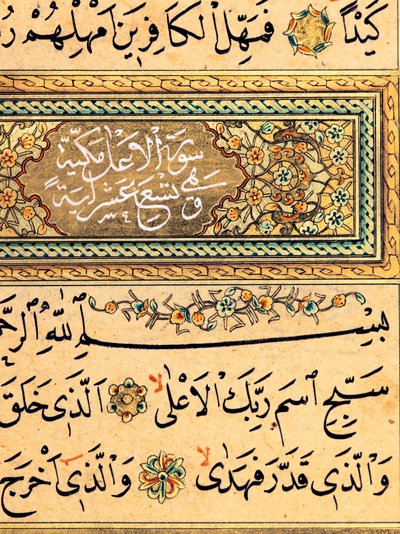 كَيْدًا فَمَهِّلِ الْكَافِرِينَ اَمْهِلْهُمْ
سورة الاعلى مكية
وهى تسع عشر اية
بِسْمِ اللّٰهِ الرَّحْ
سَبِّحِ اسْمَ رَبِّكَ الْاَعْلٰى لا اَلَّذٖى خَلَقَ
وَالَّذٖى قَدَّرَ فَهَدٰى لا وَالَّذٖى اَخْرَجَ